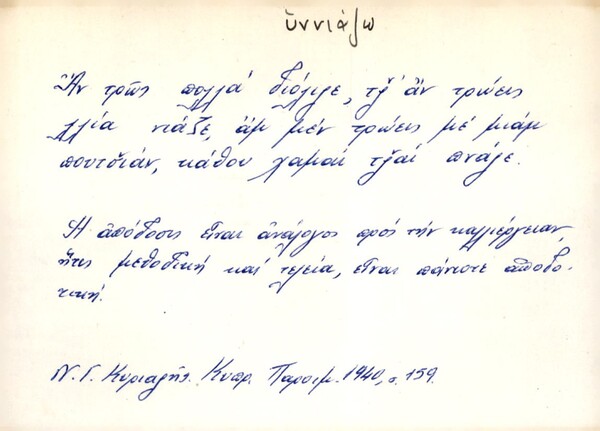 ὑννιάζω
Ἂν τρώῃς πολλά διόλιζε, τζ̆' ἂν τρώεις
λλία νιάζε, ἄμ μέν τρώεις μέ μιάμ
πουτσ̆ιάν, κάθου χαμαί τζ̆αί πνάζε.
Ἡ ἀπόδοσις εἶναι ἀνάλογος πρός τήν καλλιέργειαν,
ἥτις μεθοδική καί τελεία, εἶναι πάντοτε ἀποδο-
τική.
Ν. Γ. Κυριαζῆς. Κυπρ. Παροιμ. 1940, σ. 159.